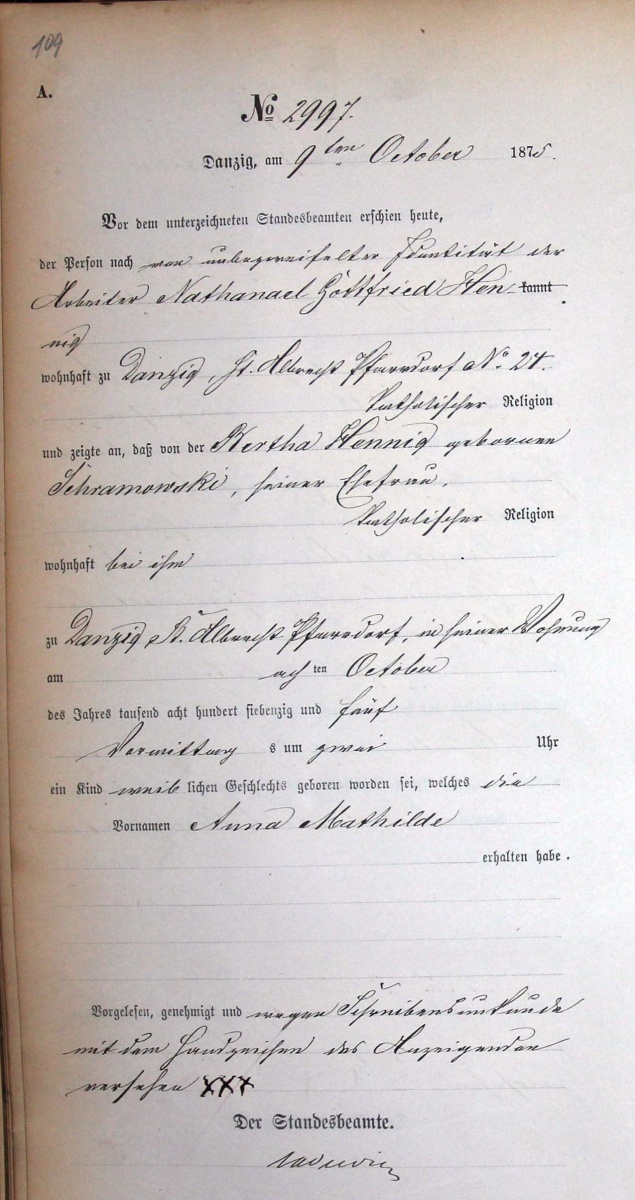 109
A.
No 2997.
Danzig, am 9ten October 1875.
Vor dem unterzeichneten Standesbeamten erschien heute,
der Person nach von unbezweifelter Identität der
Arbeiter Nathanael Gottfried Hen kannt
nig
wohnhaft zu Danzig, St. Albrecht Pfarrdorf No 24.
katholischer Religion
und zeigte an, daß von der Bertha Hennig geborenen
Schramowski, seiner Ehefrau.
katholischer Religion
wohnhaft bei ihm
zu Danzig St. Albrecht Pfarrdorf, in seiner Wohnung
am achten October
des Jahres tausend acht hundert siebenzig und fünf
Vormittags um zwei Uhr
ein Kind weiblichen Geschlechts geboren worden sei, welches die
Vornamen Anna Mathilde
erhalten habe.
Vorgelesen, genehmigt und wegen Schreibensunkunde
mit dem Handzeichen des Anzeigenden
versehen XXX
Der Standesbeamte.